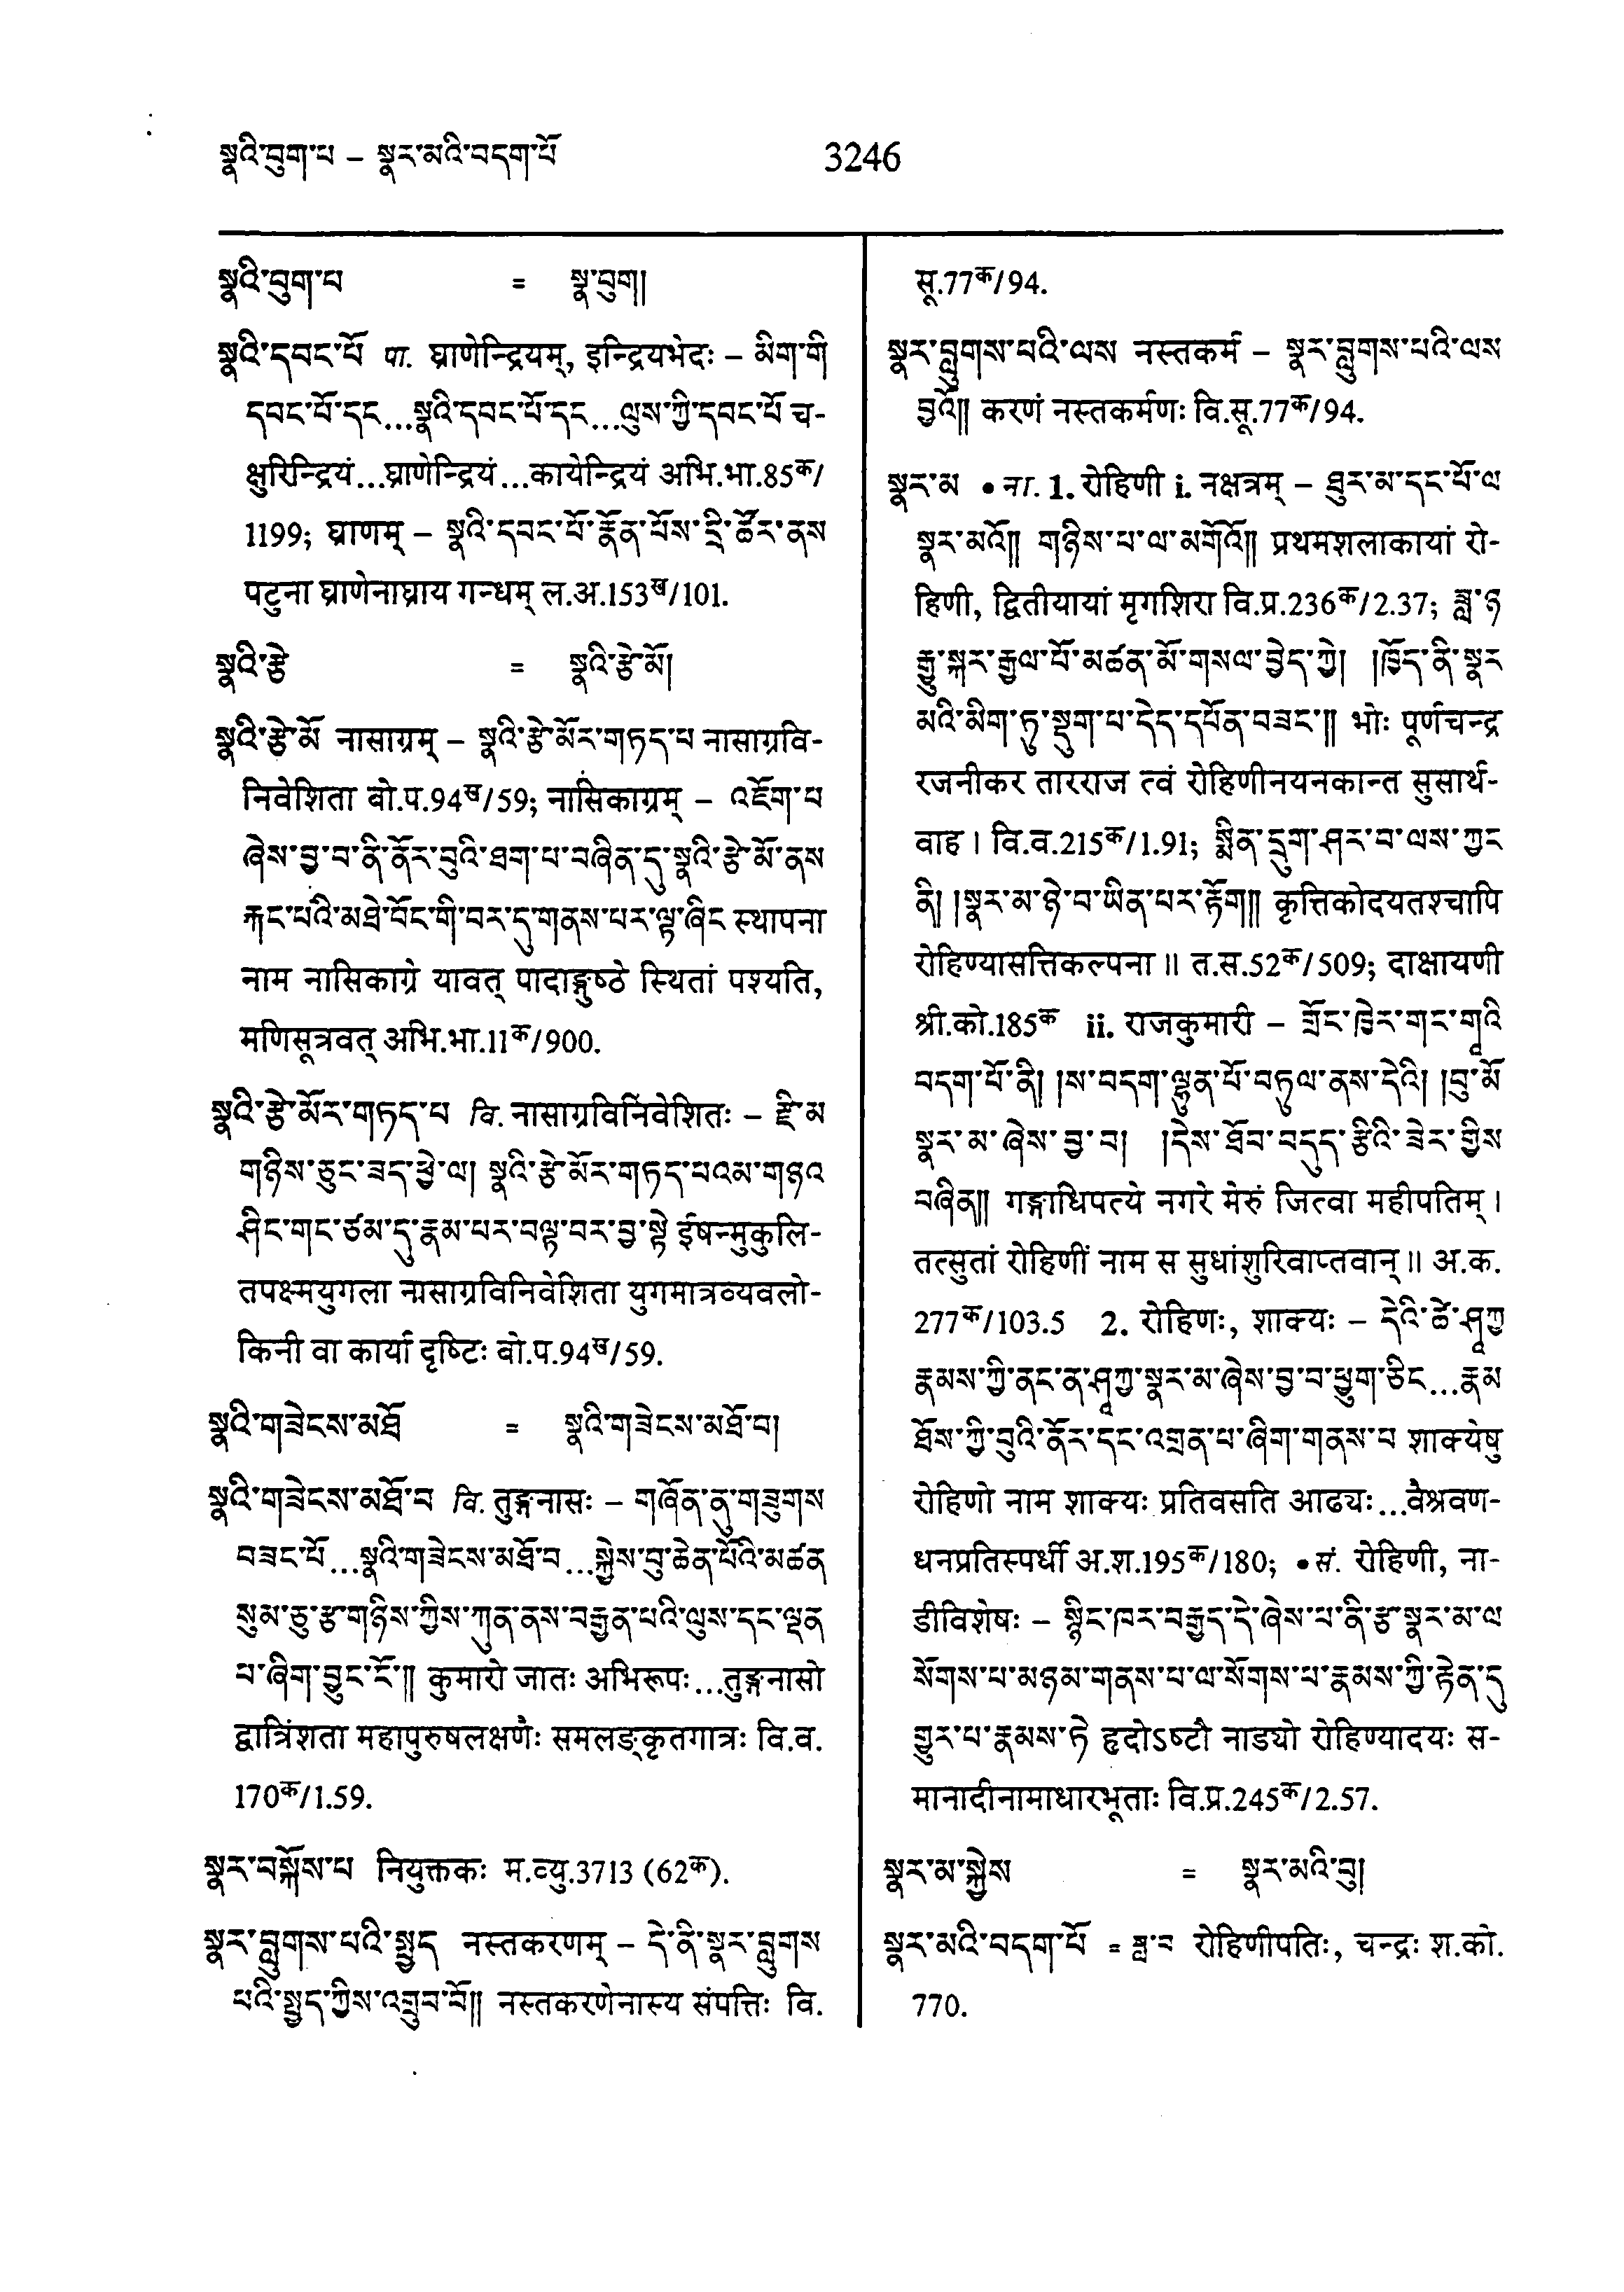 སྣའི་བུག་པ – སྣར་མའི་བདག་པོ
3246
སྣའི་བུག་པ = སྣ་བུག།
སྣའི་དབང་པོ पा. घ्राणेन्द्रियम्, इन्द्रियभेदः – མིག་གི
དབང་པོ་དང...སྣའི་དབང་པོ་དང...ལུས་ཀྱི་དབང་པོ च-
क्षुरिन्द्रियं...घ्राणेन्द्रियं...कायेन्द्रियं अभि.भा.85क/
1199; घ्राणम् – སྣའི་དབང་པོ་རྣོན་པོས་དྲི་ཚོར་ནས
पटुना घ्राणेनाघ्राय गन्धम् ल.अ.153ख/101.
སྣའི་རྩེ = སྣའི་རྩེ་མོ།
སྣའི་རྩེ་མོ नासाग्रम् – སྣའི་རྩེ་མོར་གཏད་པ नासाग्रवि-
निवेशिता बो.प.94ख/59; नासिकाग्रम् – འཇོག་པ
ཞེས་བྱ་བ་ནི་ནོར་བུའི་ཐག་པ་བཞིན་དུ་སྣའི་རྩེ་མོ་ནས
རྐང་པའི་མཐེ་བོང་གི་བར་དུ་གནས་པར་ལྟ་ཞིང स्थापना
नाम नासिकाग्रे यावत् पादाङ्गुष्ठे स्थितां पश्यति,
मणिसूत्रवत् अभि.भा.11क/900.
སྣའི་རྩེ་མོར་གཏད་པ वि. नासाग्रविनिवेशितः – རྫི་མ
གཉིས་ཅུང་ཟད་ཕྱེ་ལ། སྣའི་རྩེ་མོར་གཏད་པའམ་གཉའ
ཤིང་གང་ཙམ་དུ་རྣམ་པར་བལྟ་བར་བྱ་སྟེ ईषन्मुकुलि-
तपक्ष्मयुगला नासाग्रविनिवेशिता युगमात्रव्यवलो-
किनी वा कार्या दृष्टिः बो.प.94ख/59.
སྣའི་གཟེངས་མཐོ = སྣའི་གཟེངས་མཐོ་བ།
སྣའི་གཟེངས་མཐོ་བ वि. तुङ्गनासः – གཞོན་ནུ་གཟུགས
བཟང་པོ...སྣའི་གཟེངས་མཐོ་བ...སྐྱེས་བུ་ཆེན་པོའི་མཚན
སུམ་ཅུ་རྩ་གཉིས་ཀྱིས་ཀུན་ནས་བརྒྱན་པའི་ལུས་དང་ལྡན
པ་ཞིག་བྱུང་ངོ་༎ कुमारो जातः अभिरूपः...तुङ्गनासो
द्वात्रिंशता महापुरुषलक्षणैः समलङ्कृतगात्रः वि.व.
170क/1.59.
སྣར་བསྐོས་པ नियुक्तकः म.व्यु.3713 (62क).
སྣར་བླུགས་པའི་སྤྱད नस्तकरणम् – དེ་ནི་སྣར་བླུགས
པའི་སྤྱད་ཀྱིས་འགྲུབ་བོ༎ नस्तकरणेनास्य संपत्तिः वि.
सू.77क/94.
སྣར་བླུགས་པའི་ལས नस्तकर्म – སྣར་བླུགས་པའི་ལས
བྱའོ༎ करणं नस्तकर्मणः वि.सू.77क/94.
སྣར་མ • ना. 1. रोहिणी i. नक्षत्रम् – ཐུར་མ་དང་པོ་ལ
སྣར་མའོ༎ གཉིས་པ་ལ་མགོའོ༎ प्रथमशलाकायां रो-
हिणी, द्वितीयायां मृगशिरा वि.प्र.236क/2.37; ཟླ་ཉ
རྒྱུ་སྐར་རྒྱལ་པོ་མཚན་མོ་གསལ་བྱེད་ཀྱེ། །ཁྱོད་ནི་སྣར
མའི་མིག་ཏུ་སྡུག་པ་དེད་དཔོན་བཟང་༎ भोः पूर्णचन्द्र
रजनीकर तारराज त्वं रोहिणीनयनकान्त सुसार्थ-
वाह । वि.व.215क/1.91; སྨིན་དྲུག་ཤར་བ་ལས་ཀྱང
ནི། །སྣར་མ་ཉེ་བ་ཡིན་པར་རྟོག༎ कृत्तिकोदयतश्चापि
रोहिण्यासत्तिकल्पना ॥ त.स.52क/509; दाक्षायणी
श्री.को.185क ii. राजकुमारी – གྲོང་ཁྱེར་གང་གཱའི
བདག་པོ་ནི། །ས་བདག་ལྷུན་པོ་བཏུལ་ནས་དེའི། །བུ་མོ
སྣར་མ་ཞེས་བྱ་བ། །དེས་ཐོབ་བདུད་རྩིའི་ཟེར་གྱིས
བཞིན༎ गङ्गाधिपत्ये नगरे मेरुं जित्वा महीपतिम् ।
तत्सुतां रोहिणीं नाम स सुधांशुरिवाप्तवान् ॥ अ.क.
277क/103.5 2. रोहिणः, शाक्यः – དེའི་ཚེ་ཤཱཀྱ
རྣམས་ཀྱི་ནང་ན་ཤཱཀྱ་སྣར་མ་ཞེས་བྱ་བ་ཕྱུག་ཅིང...རྣམ
ཐོས་ཀྱི་བུའི་ནོར་དང་འགྲན་པ་ཞིག་གནས་པ शाक्येषु
रोहिणो नाम शाक्यः प्रतिवसति आढ्यः...वैश्रवण-
धनप्रतिस्पर्धी अ.श.195क/180; • सं. रोहिणी, ना-
डीविशेषः – སྙིང་ཁར་བརྒྱད་དེ་ཞེས་པ་ནི་རྩ་སྣར་མ་ལ
སོགས་པ་མཉམ་གནས་པ་ལ་སོགས་པ་རྣམས་ཀྱི་རྟེན་དུ
གྱུར་པ་རྣམས་ཏེ हृदोऽष्टौ नाड्यो रोहिण्यादयः स-
मानादीनामाधारभूताः वि.प्र.245क/2.57.
སྣར་མ་སྐྱེས = སྣར་མའི་བུ།
སྣར་མའི་བདག་པོ = ཟླ་བ रोहिणीपतिः, चन्द्रः श.को.
770.